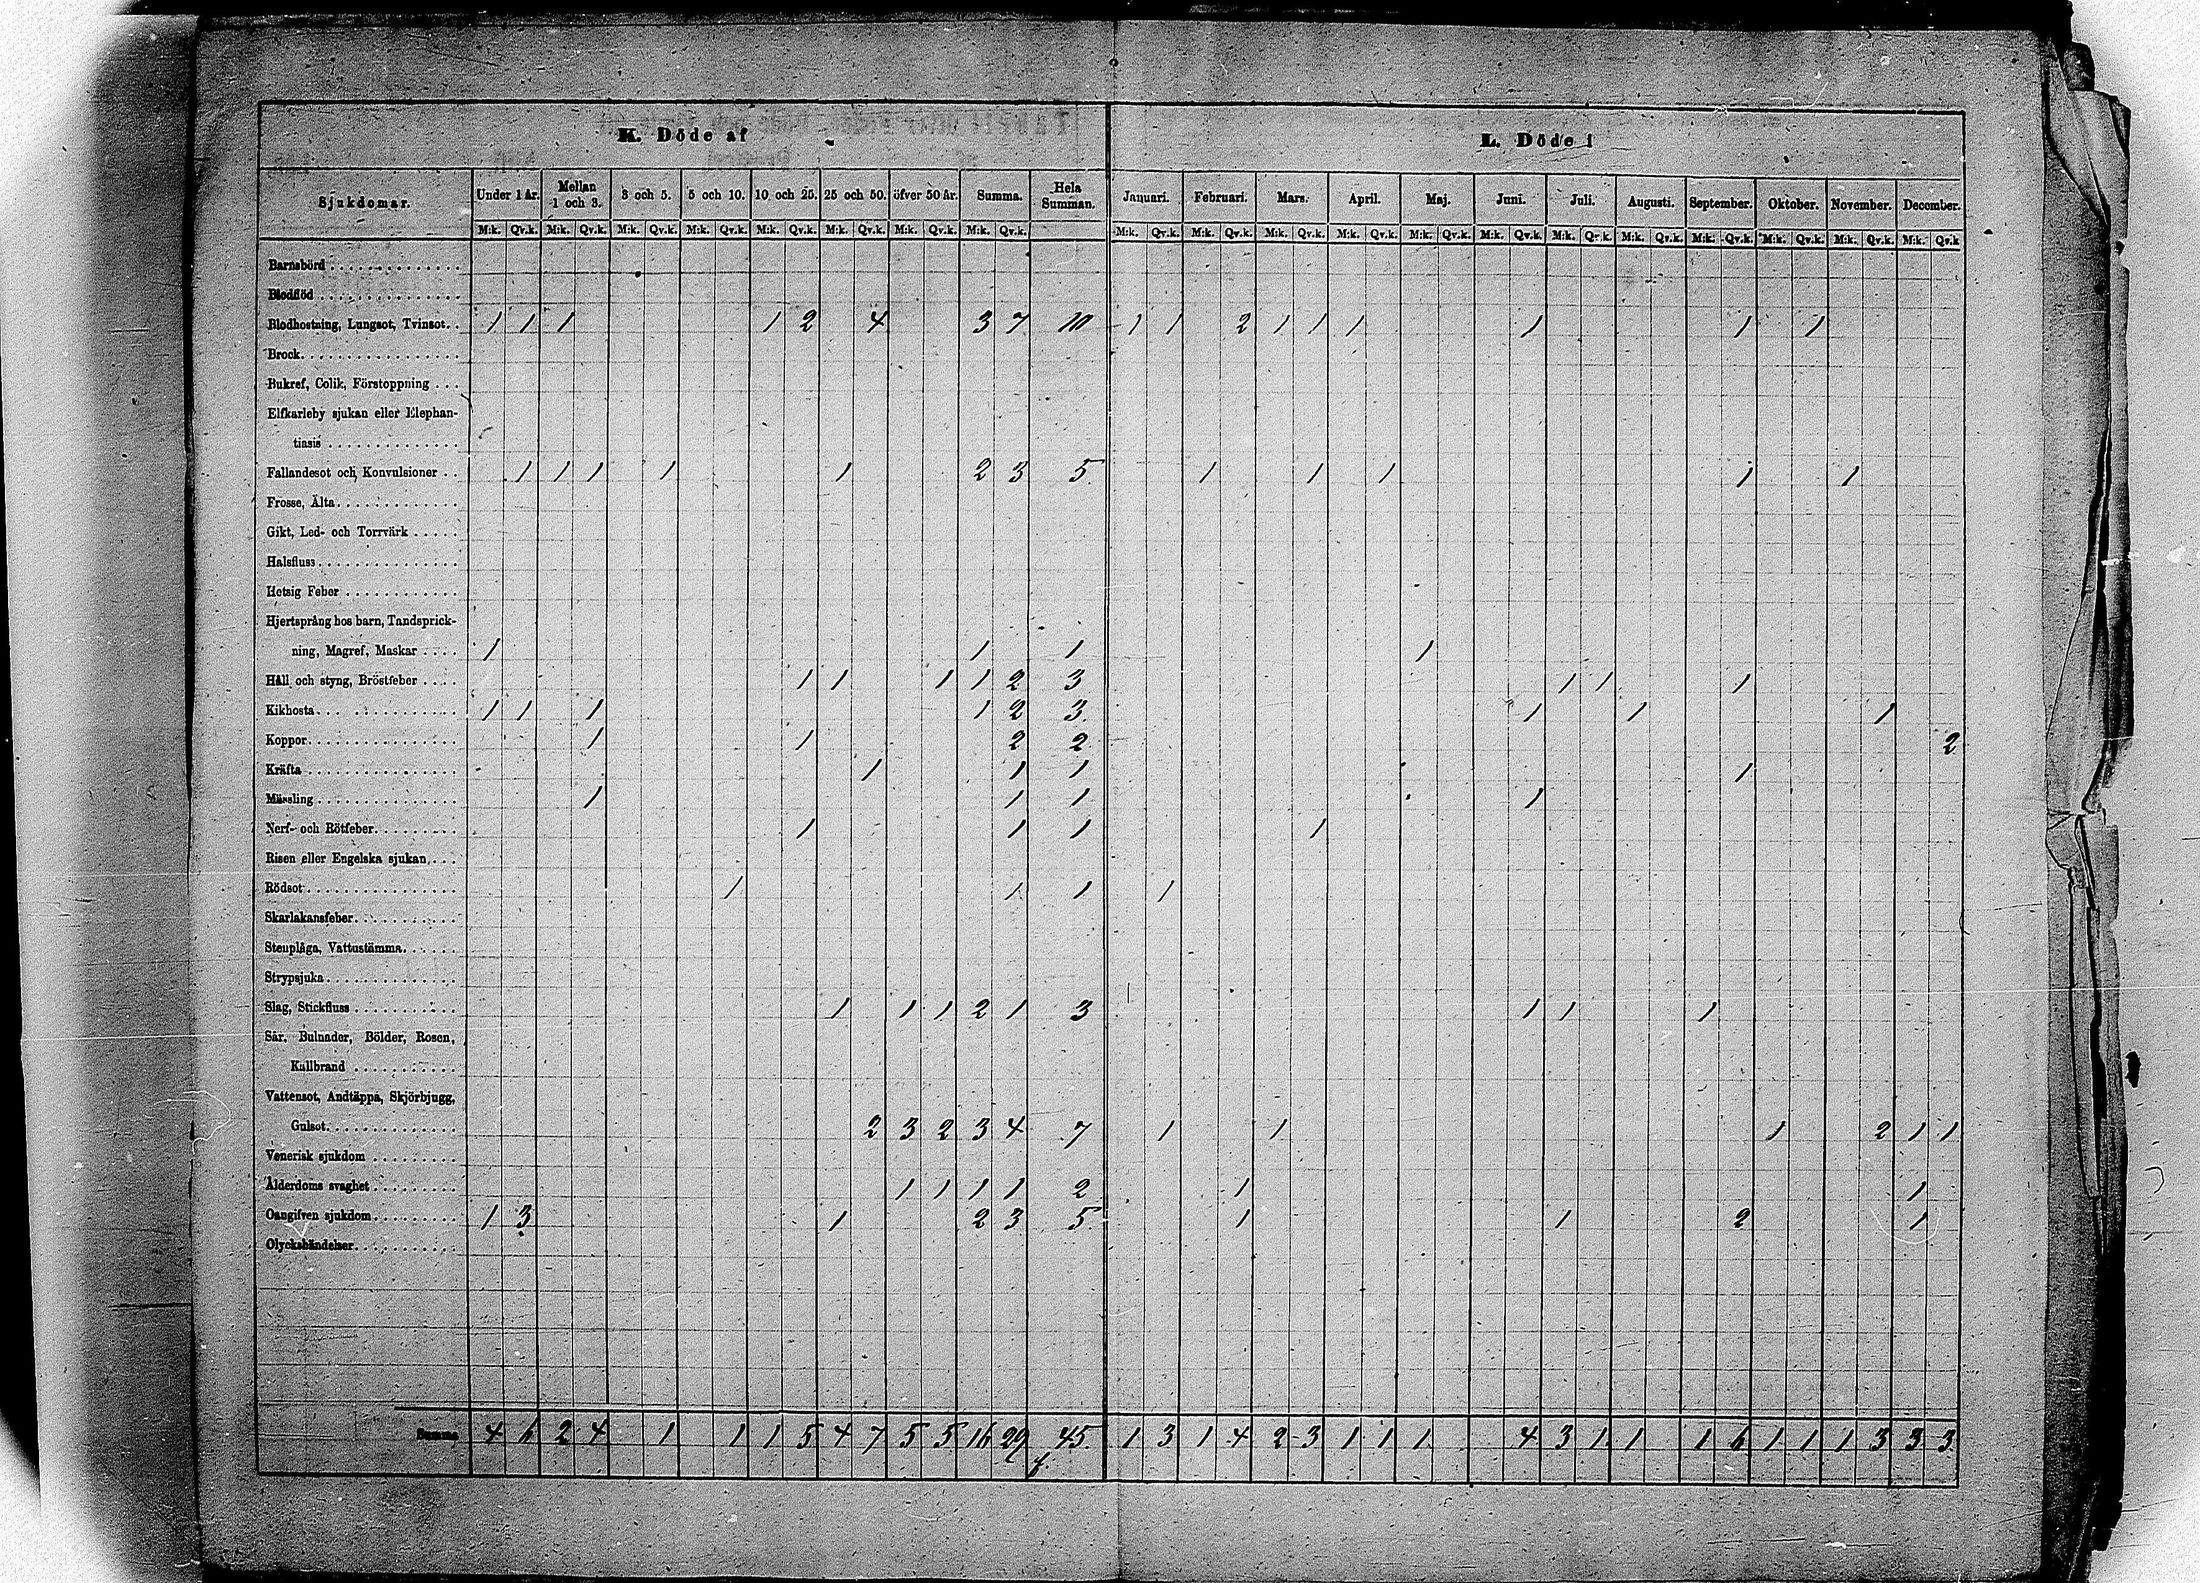 K. Döde af
L. Döde i
Sjukdomar. Under 1 År. Mellan 1 och 3. 3 och 5. 5 och 10. 10 och 25. 25 och 50. öfver 50 år. Summa. Hela Summan. Januari. Februari. Mars. April. Maj. Juni. Juli. Augusti. September. Oktober. November. December.
M:k. Qv.k. M:k. Qv.k. M:k. Qv.k. M:k. Qv.k. M:k. Qv.k. M:k. Qv.k. M:k. Qv.k. M:k. Qv.k. M:k. Qv.k. M:k. Qv.k. M:k. Qv.k. M:k. Qv.k. M:k. Qv.k. M:k. Qv.k. M:k. Qv.k. M:k. Qv.k. M:k. Qv.k. M:k. Qv.k. M:k. Qv.k. M:k. Qv.k
Barnsbörd
Blodflöd
Blodhostning, Lungsot, Tvinsot. 1 1 1 1 2 4 3 7 10 1 1 2 1 1 1 1 1 1
Brock
Bukref, Colik, Förstoppning
Elfkarleby sjukan eller Elephan-
tiasis
Fallandesot och Konvulsioner 1 1 1 1 1 2 3 5 1 1 1 1 1
Frosse, Älta
Gikt, Led- och Torrvärk
Halsfluss
Hetsig Feber
Hjertsprång hos barn, Tandsprick-
ning, Magref, Maskar 1 1 1 1
Håll och styng, Bröstfeber 1 1 1 1 2 3 1 1 1
Kikhosta 1 1 1 1 2 3 1 1 1
Koppor 1 1 2 2 2
Kräfta 1 1 1 1
Mässling 1 1 1 1
Nerf- och Rötfeber 1 1 1 1
Risen eller Engelska sjukan
Rödsot 1 1 1 1
Skarlakansfeber
Stenplåga, Vattustämma
Strypsjuka
Slag, Stickfluss 1 1 1 2 1 3 1 1 1
Sår, Bulnader, Bölder, Rosen,
Kallbrand
Vattensot, Andtäppa, Skjörbjugg,
Gulsot 2 3 2 3 4 7 1 1 1 2 1 1
Venerisk sjukdom
Ålderdoms svaghet 1 1 1 1 2 1 1
Oangifven sjukdom 1 3 1 2 3 5 1 1 2 1
Olyckshändelser
Summa 4 6 2 4 1 1 1 5 4 7 5 5 16 29 45 1 3 1 4 2 3 1 1 1 4 3 1 1 1 6 1 1 1 3 3 3